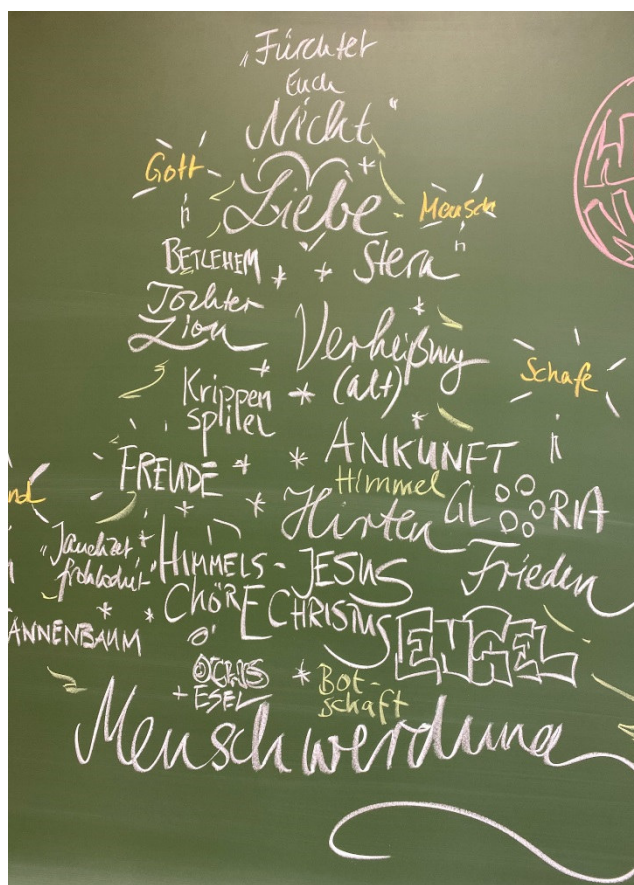 „Fürchtet
Euch
Nicht“
Gott
Liebe
Mensch
BETLEHEM * * Stern
Tochter
Zion
Verheißung
(alt)
Schafe
Krippen *
spiele
ANKUNFT
FREUDE * *
Himmel
nd
Hirten
GLOOOORIA
„Jauchzet +
frohlocket“
HIMMELS-
CHÖRE
JESUS
CHRISTUS
Frieden
ANNENBAUM
ENGEL
OCHS
+ ESEL
* Bot-
schaft
Menschwerdung